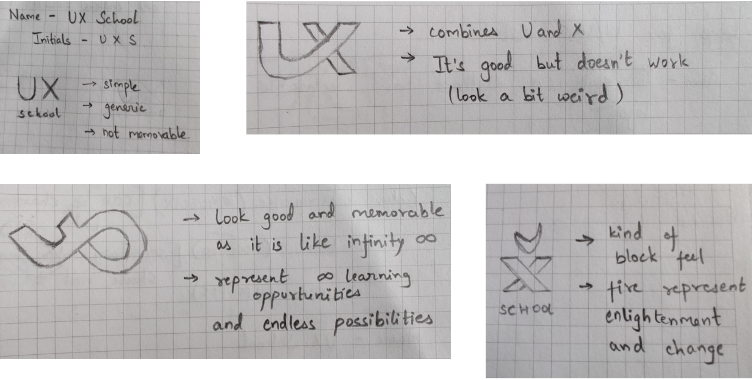 Name - UX School
Initials - U X S
UX
school
→ simple
→ generic
→ not memorable
UX
→ combines U and X
→ It's good but doesn't work
(look a bit weird)
→ look good and memorable
as it is like infinity ∞
→ represent ∞ learning
oppurtunities
and endless possibilities
UX
SCHOOL
→ kind of
block feel
→ fire represent
enlightenment
and change